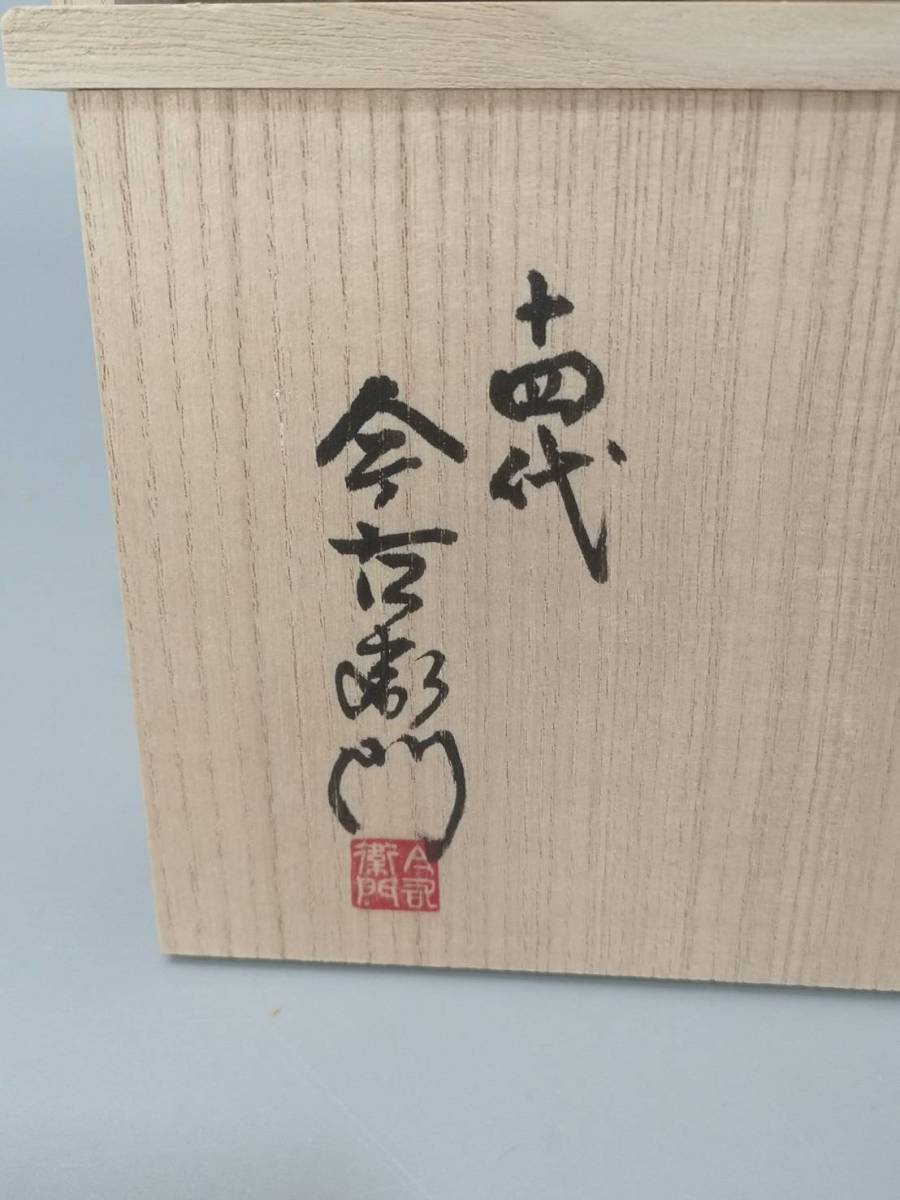 十四代
今右衛門
今右
衛門